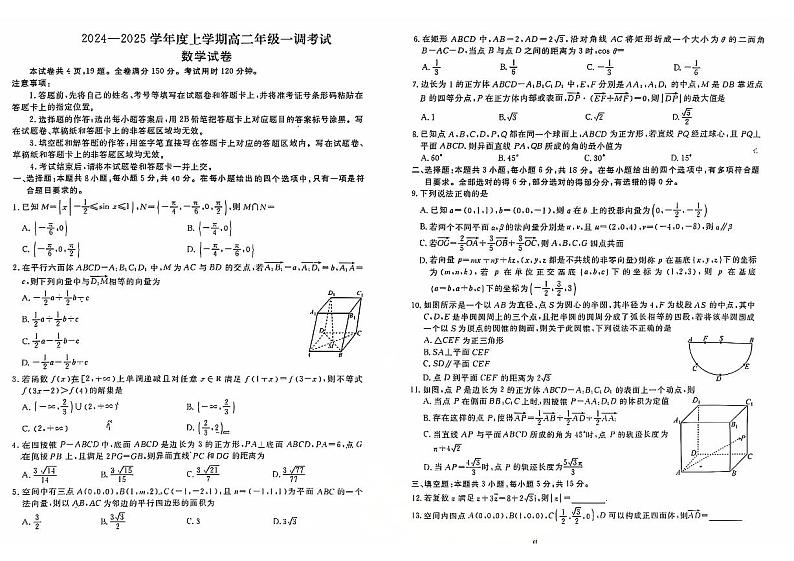 2024—2025学年度上学期高二年级一调考试
数学试卷
本试卷共4页,19题。全卷满分150分。考试用时120分钟。
注意事项:
1.答题前,先将自己的姓名、考号等填写在试题卷和答题卡上,并将准考证号条形码粘贴在
答题卡上的指定位置。
2.选择题的作答:选出每小题答案后,用2B铅笔把答题卡上对应题目的答案标号涂黑。写
在试题卷、草稿纸和答题卡上的非答题区域均无效。
3.填空题和解答题的作答:用签字笔直接写在答题卡上对应的答题区域内。写在试题卷、
草稿纸和答题卡上的非答题区域均无效。
4.考试结束后,请将本试题卷和答题卡一并上交。
一、选择题:本题共8小题,每小题5分,共40分。在每小题给出的四个选项中,只有一项是符
合题目要求的。
1.已知M={x|-1/2≤sin x≤1},N={-π/4,-π/6,0,π/2},则M∩N=
A.{-π/6,0} B.{-π/4,-π/6,0}
C.{-π/6,0,π/2} D.{-π/4,-π/6,0,π/2}
2.在平行六面体ABCD-A₁B₁C₁D₁中,M为AC与BD的交点,若A₁B₁=a,A₁D₁=b,A₁A=
c,则下列向量中与D₁M相等的向量为
A.-1/2a+1/2b+c
B.1/2a+1/2b+c
C.1/2a-1/2b+c
D.-1/2a-1/2b+c
3.若函数f(x)在[2,+∞)上单调递减且对任意x∈R满足f(1+x)=f(3-x),则不等式
f(3x-2)>f(4)的解集是
A.(-∞,2/3)∪(2,+∞) B.(-∞,2/3)
C.(2,+∞) D.(2/3,2)
4.在四棱锥P-ABCD中,底面ABCD是边长为3的正方形,PA⊥底面ABCD,PA=6,点G
在侧棱PB上,且满足2PG=GB,则异面直线PC和DG的距离为
A.3√14/14 B.3√15/15 C.3√21/7 D.3√77/77
5.空间中有三点A(0,0,0),B(1,m,2),C(-1,-2,1),且n=(-1,1,1)为平面ABC的一个
法向量,则以AB,AC为邻边的平行四边形的面积为
A.3/2 B.3√3/2 C.3 D.3√3
6.在矩形ABCD中,AB=2,AD=2√3,沿对角线AC将矩形折成一个大小为θ的二面角
B-AC-D,当点B与点D之间的距离为3时,cos θ=
A.1/3 B.1/6 C.-1/3 D.-1/6
7.边长为1的正方体ABCD-A₁B₁C₁D₁中,E,F分别是AA₁,A₁D₁的中点,M是DB靠近点
B的四等分点,P在正方体内部或表面,DP·(EF+MF)=0,则|DP|的最大值是
A.1 B.√5/2 C.√2 D.√3/2
8.已知点A,B,C,D,P,Q都在同一个球面上,ABCD为正方形,若直线PQ经过球心,且PQ⊥
平面ABCD,则异面直线PA,QB所成的角的最小值为
A.60° B.45° C.30° D.15°
二、选择题:本题共3小题,每小题6分,共18分。在每小题给出的四个选项中,有多项符合题
目要求。全部选对的得6分,部分选对的得部分分,有选错的得0分。
9.下列说法正确的是
A.已知a=(0,1,1),b=(0,0,-1),则a在b上的投影向量为(0,-1/2,-1/2)
B.若两个不同平面α,β的法向量分别是u,v,且u=(2,0,4),v=(-4,0,-8),则α∥β
C.若OG=2/5OA+3/5OB+3/5OC,则A,B,C,G四点共面
D.若向量p=mx+ny+kz,(x,y,z都是不共线的非零向量)则称p在基底{x,y,z}下的坐标
为(m,n,k),若p在单位正交基底{a,b,c}下的坐标为(1,2,3),则p在基底
{a-b,a+b,c}下的坐标为(-1/2,3/2,3)
10.如图所示是一个以AB为直径,点S为圆心的半圆,其半径为4,F为线段AS的中点,其中
C,D,E是半圆圆周上的三个点,且把半圆的圆周分成了弧长相等的四段,若将该半圆围成
一个以S为顶点的圆锥的侧面,则关于此圆锥,下列说法不正确的是
A.△CEF为正三角形
B.SA⊥平面CEF
C.SD∥平面CEF
D.点D到平面CEF的距离为2√3
11.如图,点P是边长为2的正方体ABCD-A₁B₁C₁D₁的表面上一个动点,则
A.当点P在侧面BB₁C₁C上时,四棱锥P-AA₁D₁D的体积为定值
B.存在这样的点P,使得AP=1/2AB+1/2AD+1/2AA₁
C.当直线AP与平面ABCD所成的角为45°时,点P的轨迹长度为
π+4√2
D.当AP=4√3/3时,点P的轨迹长度为5√3π/3
三、填空题:本题共3小题,每小题5分,共15分。
12.若复数z满足z+3z̄=8+2√3i,则|z|=________.
13.空间内四点A(0,0,0),B(1,0,0),C(1/2,√3/2,0),D可以构成正四面体,则AD=________